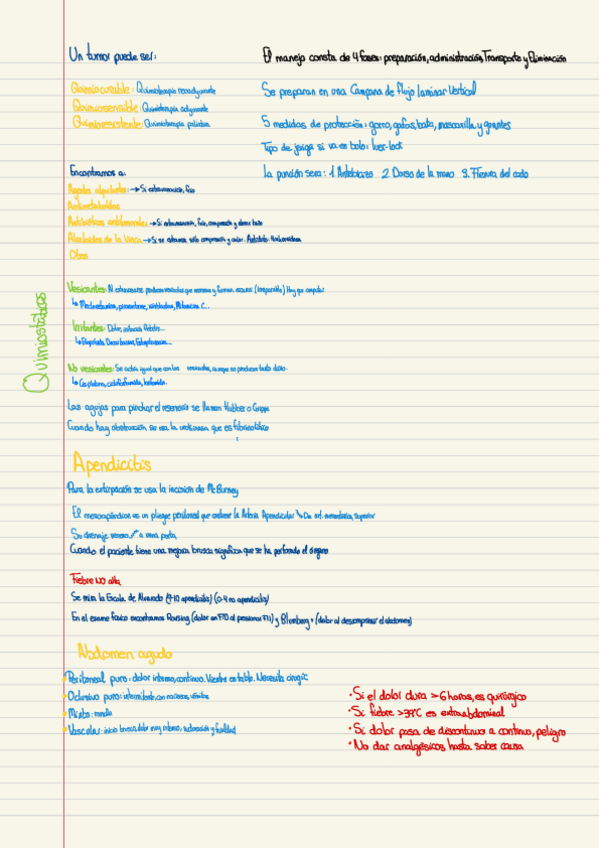 Un tumor puede ser:
Quimiocurable: Quimioterapia neoadyuvante
Quimiosensible: Quimioterapia adyuvante
Quimioresistente: Quimioterapia paliativa
El manejo consta de 4 fases: preparación, administración, Transporte y Eliminación
Se preparan en una Campana de flujo laminar Vertical
5 medidas de protección: gorro, gafas, bata, mascarilla y guantes
Tipo de jeringa si va en bolo: luer-lock
La punción sera: 1 Antebrazo 2. Dorso de la mano 3. Flexura del codo
Encontramos a:
Agentes alquilantes: → Si extravasación, frio
Antimetabolitos
Antibióticos antitumorales → Si extravasación, frio, compresión y
Alcaloides de la Vinca → Si se extravasa sólo compresión y calor. Antídoto: Hialuronidasa
Otros
Quimiostáticos
Vesicantes: Al extravasarse producen vesículas que necrosan y forman escaras (irreparable) Hay que amputar
↳ Mitomicina C...
Irritantes: Dolor, intenso
↳
No vesicantes: Se actúa igual que con los vesicantes, aunque no producen tanto daño.
↳
Las agujas para pinchar el reservorio se llaman Hubber o Gripper
Cuando hay obstrucción se usa la urokinasa que es fibrinolítico
Apendicitis
Para la extirpación se usa la incisión de McBurney
El mesoapéndice es un pliegue peritoneal que contiene la Arteria Apendicular ↘ De art. mesentérica superior
Su drenaje venoso ↗ a vena porta
Cuando el paciente tiene una mejora brusca significa que se ha perforado el órgano
Fiebre NO alta
Se mira la Escala de Alvarado (7-10 apendicitis) (0-4 no apendicitis)
En el examen físico encontramos Rovsing (dolor en FID al presionar FII) y Blumberg + (dolor al descomprimir el abdomen)
Abdomen agudo
Peritoneal puro: dolor intenso, continuo. Vientre en tabla. Necesita cirugía
Oclusivo puro: intermitente, con náuseas, vómitos
Mixto: mezcla
Vascular: inicio brusco, dolor muy intenso, sudoración y
• Si el dolor dura > 6 horas, es quirúrgico
• Si fiebre > 39°C es extraabdominal
• Si dolor pasa de discontinuo a continuo, peligro
• No dar analgésicos hasta saber causa